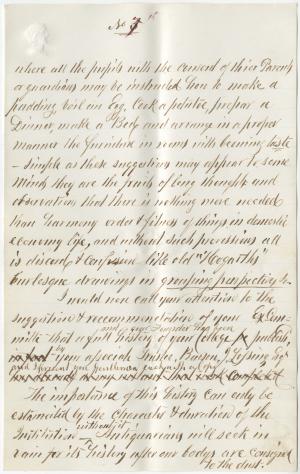 No 7
where all the pupils with the consent of thier Parents
or guardians may be instructed how to make a
pudding boil an Egg, Cook a potatoe, prepare a
Dinner, make a Bed and arrange in a proper
manner the furniture in rooms with becoming taste
- Simple as these suggestions may appear to some
Minds they are the fruits of long thought and
observation that there is nothing more needed
than harmony order & fitness of things in domestic
economy life, and without such provisions all
is discord & confusion like old "Hogarths"
burlesque drawings in
I would now call your attention to the
suggestion & recommendation of your Ex Com
and our Founder has been
mittee that a full History of your College publish,
by your special Trustee, Benson J Lossing Esqr
and
The importance of this History can only be
estimated by the Character & duration of the
Institution without it Antiquarians will seek in
vain for its History after our bodys are consigned
to the dust.